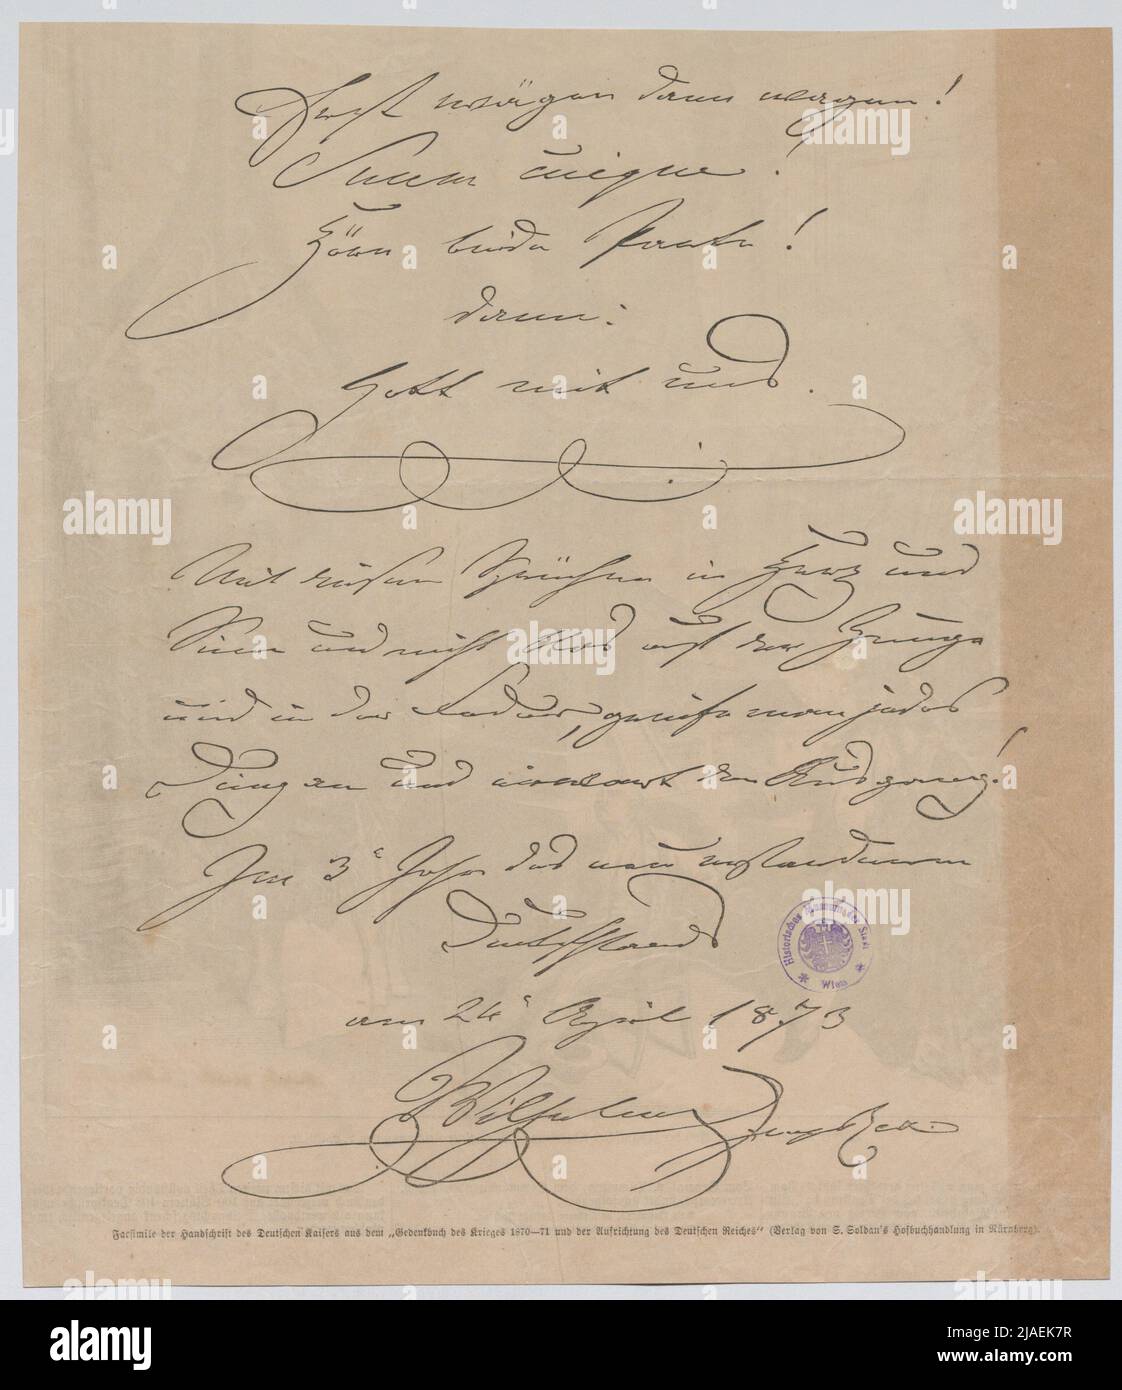 Erst wägen dann wagen!
Suum cuique!
Höre beide Parte!
dann:
Gott mit uns.
Mit diesen Sprüchen in Herz und
Sinn und nicht blos auf der Zunge
und in der Feder, greife man jedes
Ding an und den Ausgang!
Im 3t Jahr des neu erstandenen
Deutschlands
am 24t April 1873
Wilhelm
Historisches Museum der Stadt
Wien
Facsimile der Handschrift des Deutschen Kaisers aus dem „Gedenkbuch des Krieges 1870—71 und der Aufrichtung des Deutschen Reiches“ (Verlag von S. Soldan's Hofbuchhandlung in Nürnberg).
alamy
Image ID: 2JAEK7R
www.alamy.com